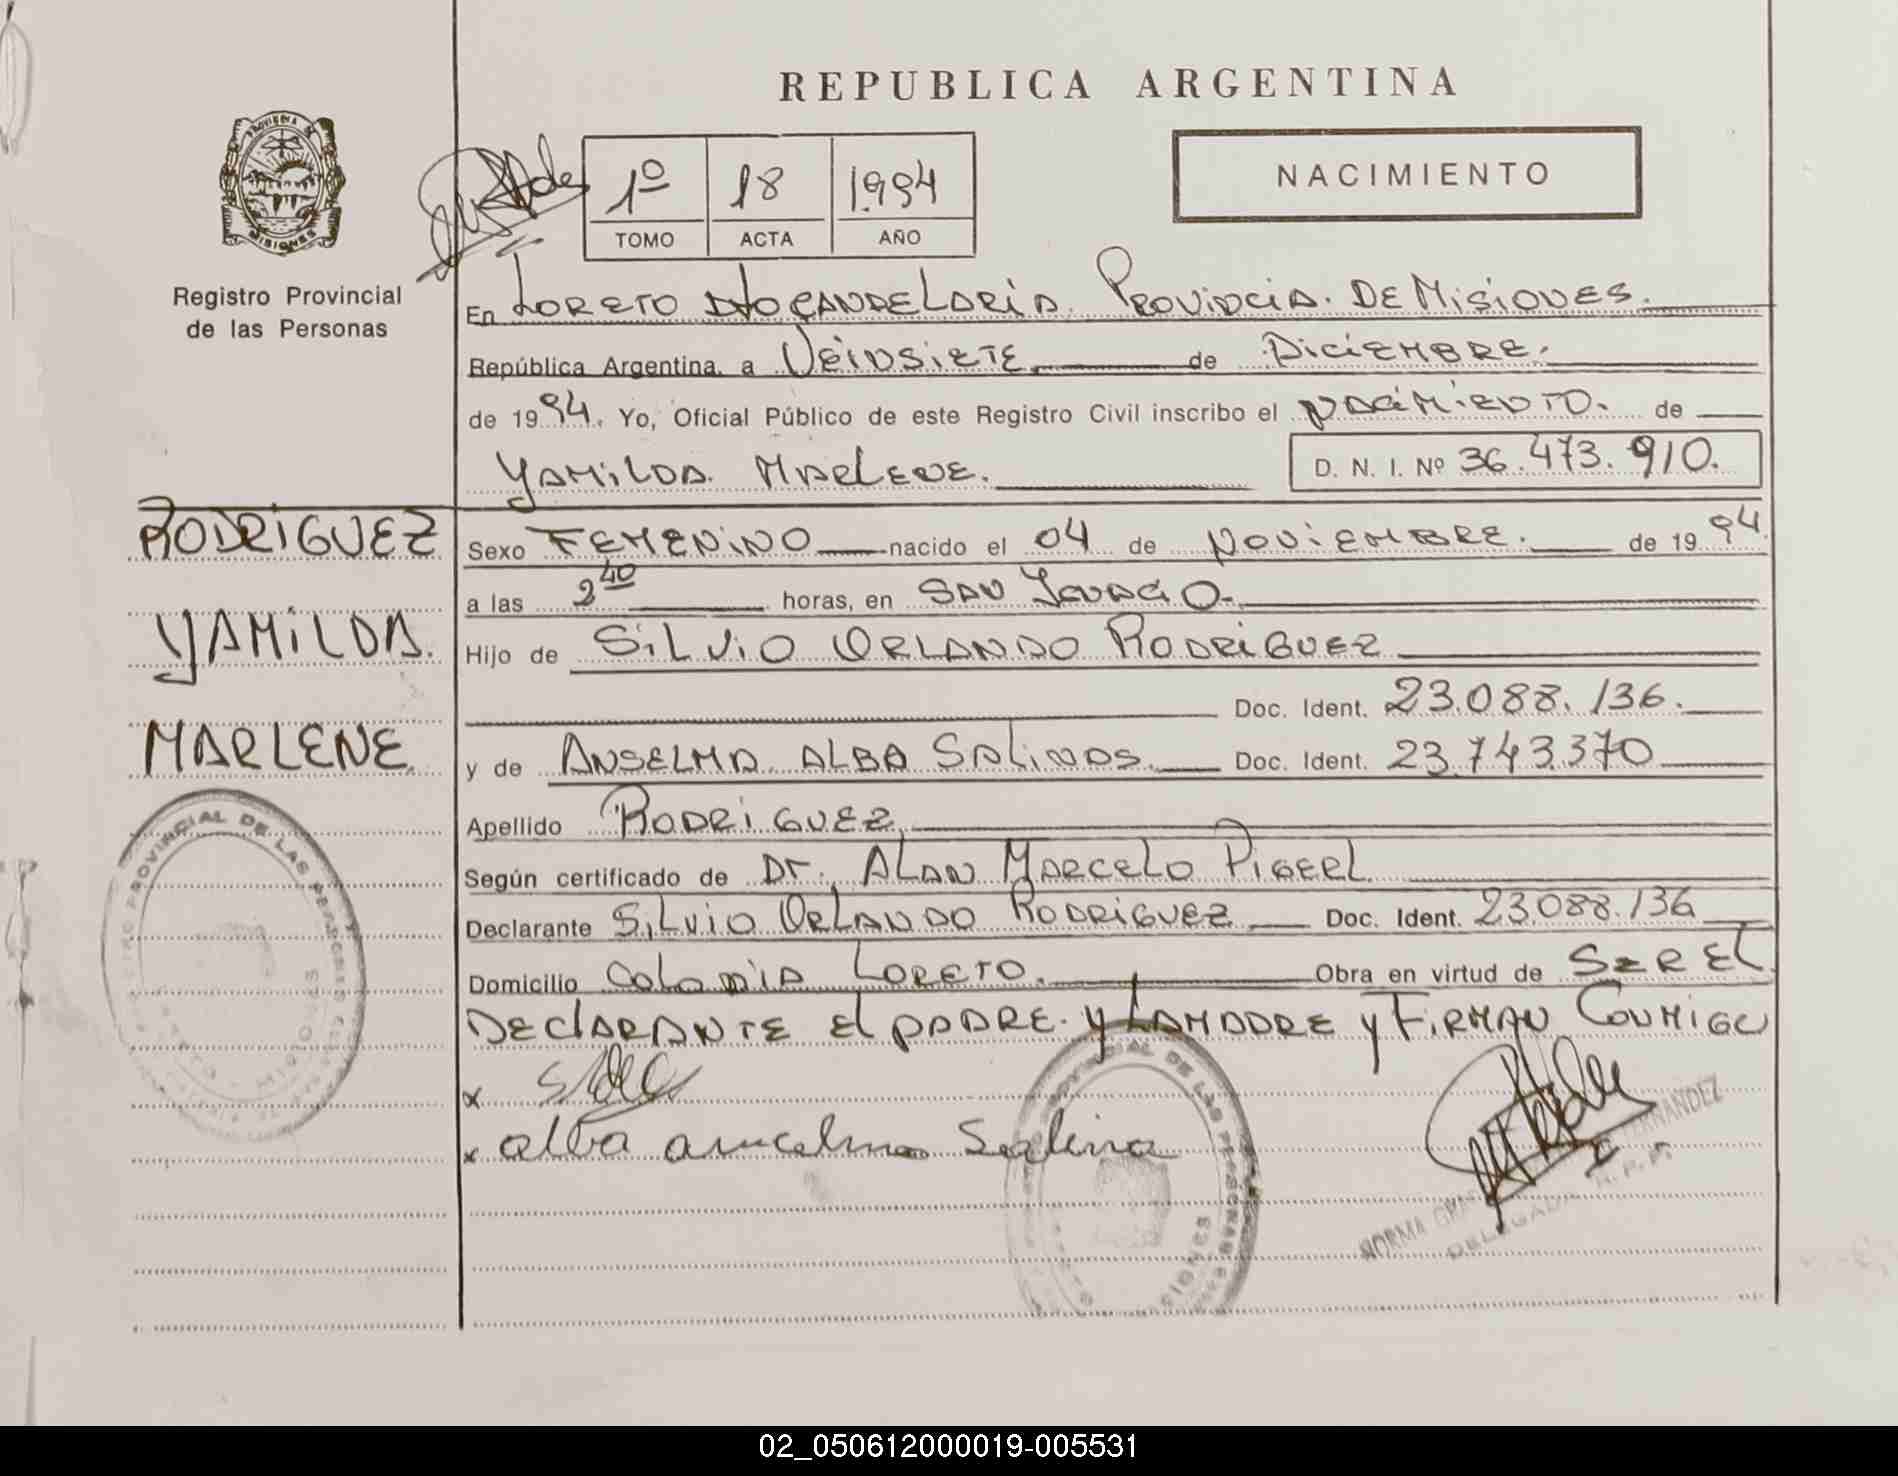 REPUBLICA ARGENTINA
PROVINCIA DE
MISIONES
Registro Provincial
de las Personas
1º 18 1994
TOMO ACTA AÑO
NACIMIENTO
En LORETO DTO CANDELARIA PROVINCIA. DE MISIONES.
República Argentina, a VEINSIETE de DICIEMBRE.
de 1994. Yo, Oficial Público de este Registro Civil inscribo el NACIMIENTO. de
YAMILDA. MARLENE. D. N. I. Nº 36.473.910.
RODRIGUEZ
YAMILDA.
MARLENE.
Sexo FEMENINO nacido el 04 de NOVIEMBRE. de 1994
a las 2 40 horas, en SAN IGNACIO.
Hijo de SILVIO ORLANDO RODRIGUEZ
Doc. Ident. 23.088.136.
y de ANSELMA ALBA SALINAS. Doc. Ident. 23.743.370
Apellido RODRIGUEZ
Según certificado de Dr. ALAN MARCELO PIGERL
Declarante SILVIO ORLANDO RODRIGUEZ Doc. Ident. 23.088.136
Domicilio COLONIA LORETO. Obra en virtud de SER EL
DECLARANTE EL PADRE. Y LA MADRE Y FIRMAN CONMIGO
x
x alba ancelma Salina
PROVINCIAL DE LAS PERSONAS
MISIONES
PROVINCIAL DE LAS PERSONAS
MISIONES
NORMA FERNANDEZ
DELEGADA R. P. P.
02_050612000019-005531